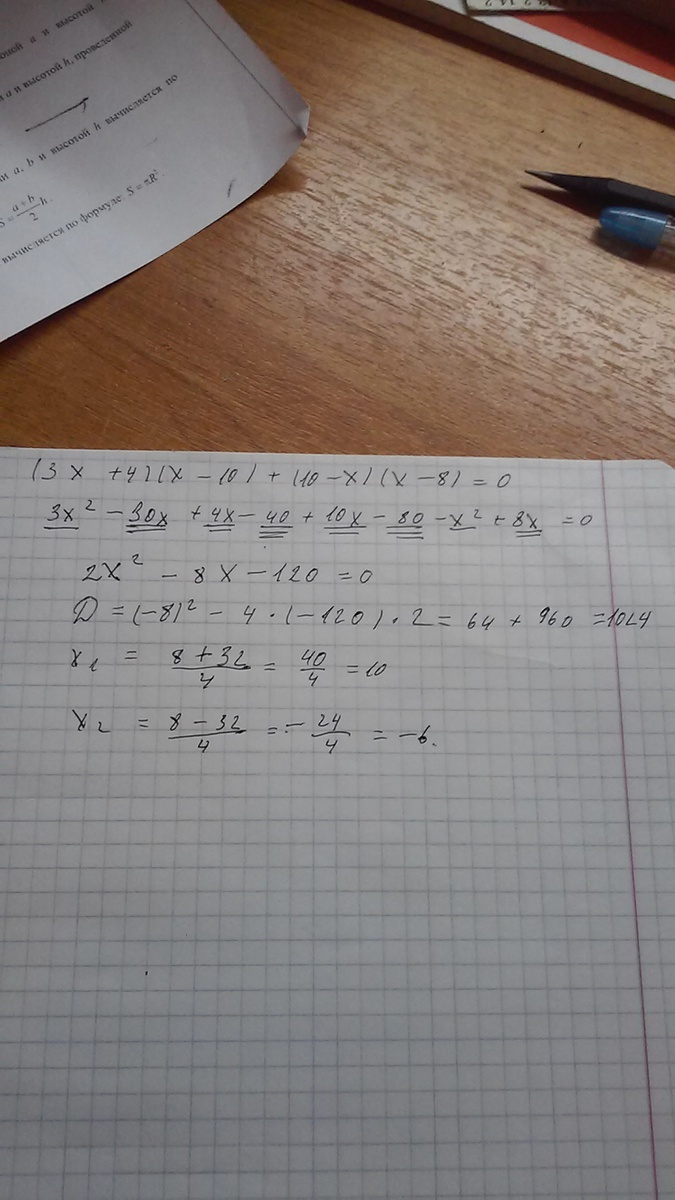 а и высотой
а и высотой h, проведенной
и a, b и высотой h вычисляется по
S = \frac{a+b}{2}h.
вычисляется по формуле S = πR².
(3x + 4)(x - 10) + (10 - x)(x - 8) = 0
3x² - 30x + 4x - 40 + 10x - 80 - x² + 8x = 0
2x² - 8x - 120 = 0
D = (-8)² - 4 · (-120) · 2 = 64 + 960 = 1024
x₁ = \frac{8 + 32}{4} = \frac{40}{4} = 10
x₂ = \frac{8 - 32}{4} = -\frac{24}{4} = -6.